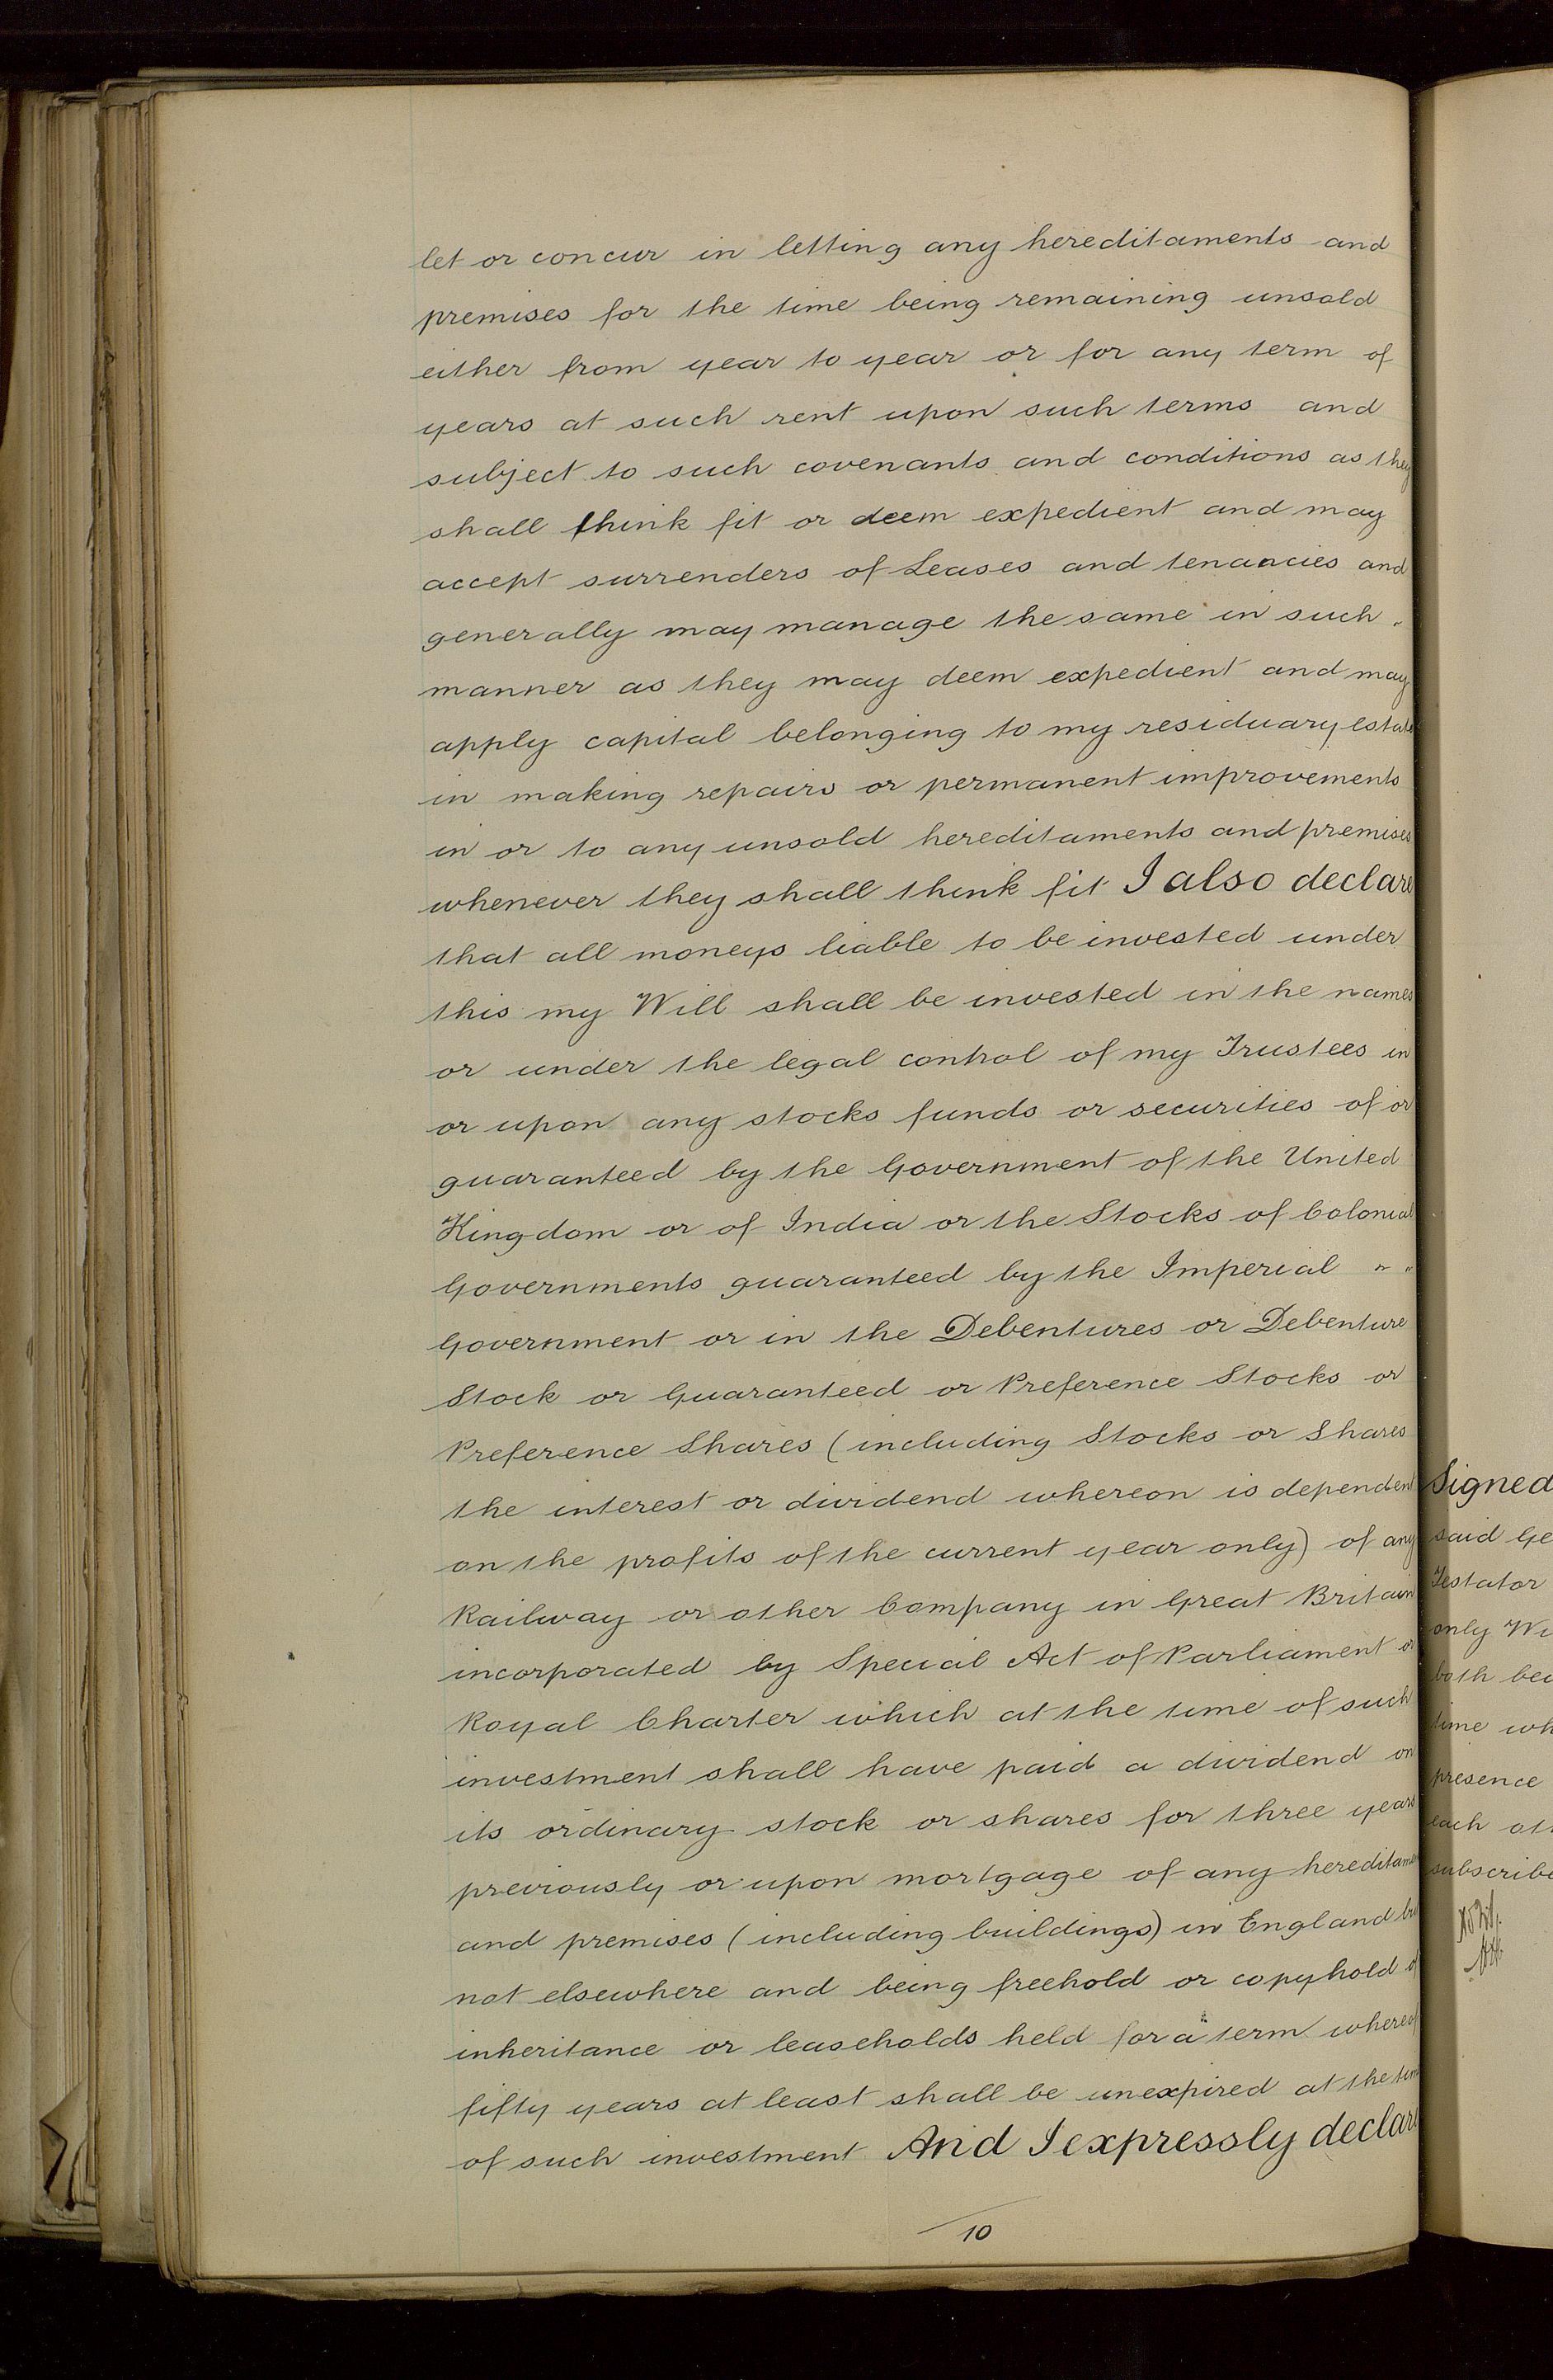 let or concur in letting any hereditaments and
premises for the time being remaining unsold
either from year to year or for any term of
years at such rent upon such terms and
subject to such covenants and conditions as they
shall think fit or deem expedient and may
accept surrenders of Leases and tenancies and
generally may manage the same in such
manner as they may deem expedient and may
apply capital belonging to my residuary estate
in making repairs or permanent improvements
in or to any unsold hereditaments and premises
whenever they shall think fit I also declare
that all moneys liable to be invested under
this my Will shall be invested in the names
or under the legal control of my Trustees in
or upon any stocks funds or securities of or
guaranteed by the Government of the United
Kingdom or of India or the Stocks of Colonial
Governments guaranteed by the Imperial " "
Government or in the Debentures or Debenture
Stock or Guaranteed or Preference Stocks or
Preference Shares (including Stocks or Shares
the interest or dividend whereon is dependent
on the profits of the current year only) of any
Railway or other Company in Great Britain
incorporated by Special Act of Parliament or
Royal Charter which at the time of such
investment shall have paid a dividend on
its ordinary stock or shares for three years
previously or upon mortgage of any hereditamen
and premises (including buildings) in England bu
not elsewhere and being freehold or copyhold of
inheritance or leaseholds held for a term whereof
fifty years at least shall be unexpired at the tim
of such investment And I expressly declare
10
Signed
said Ge
Testator
only Wi
both bei
time wh
presence
each ot
subscribe